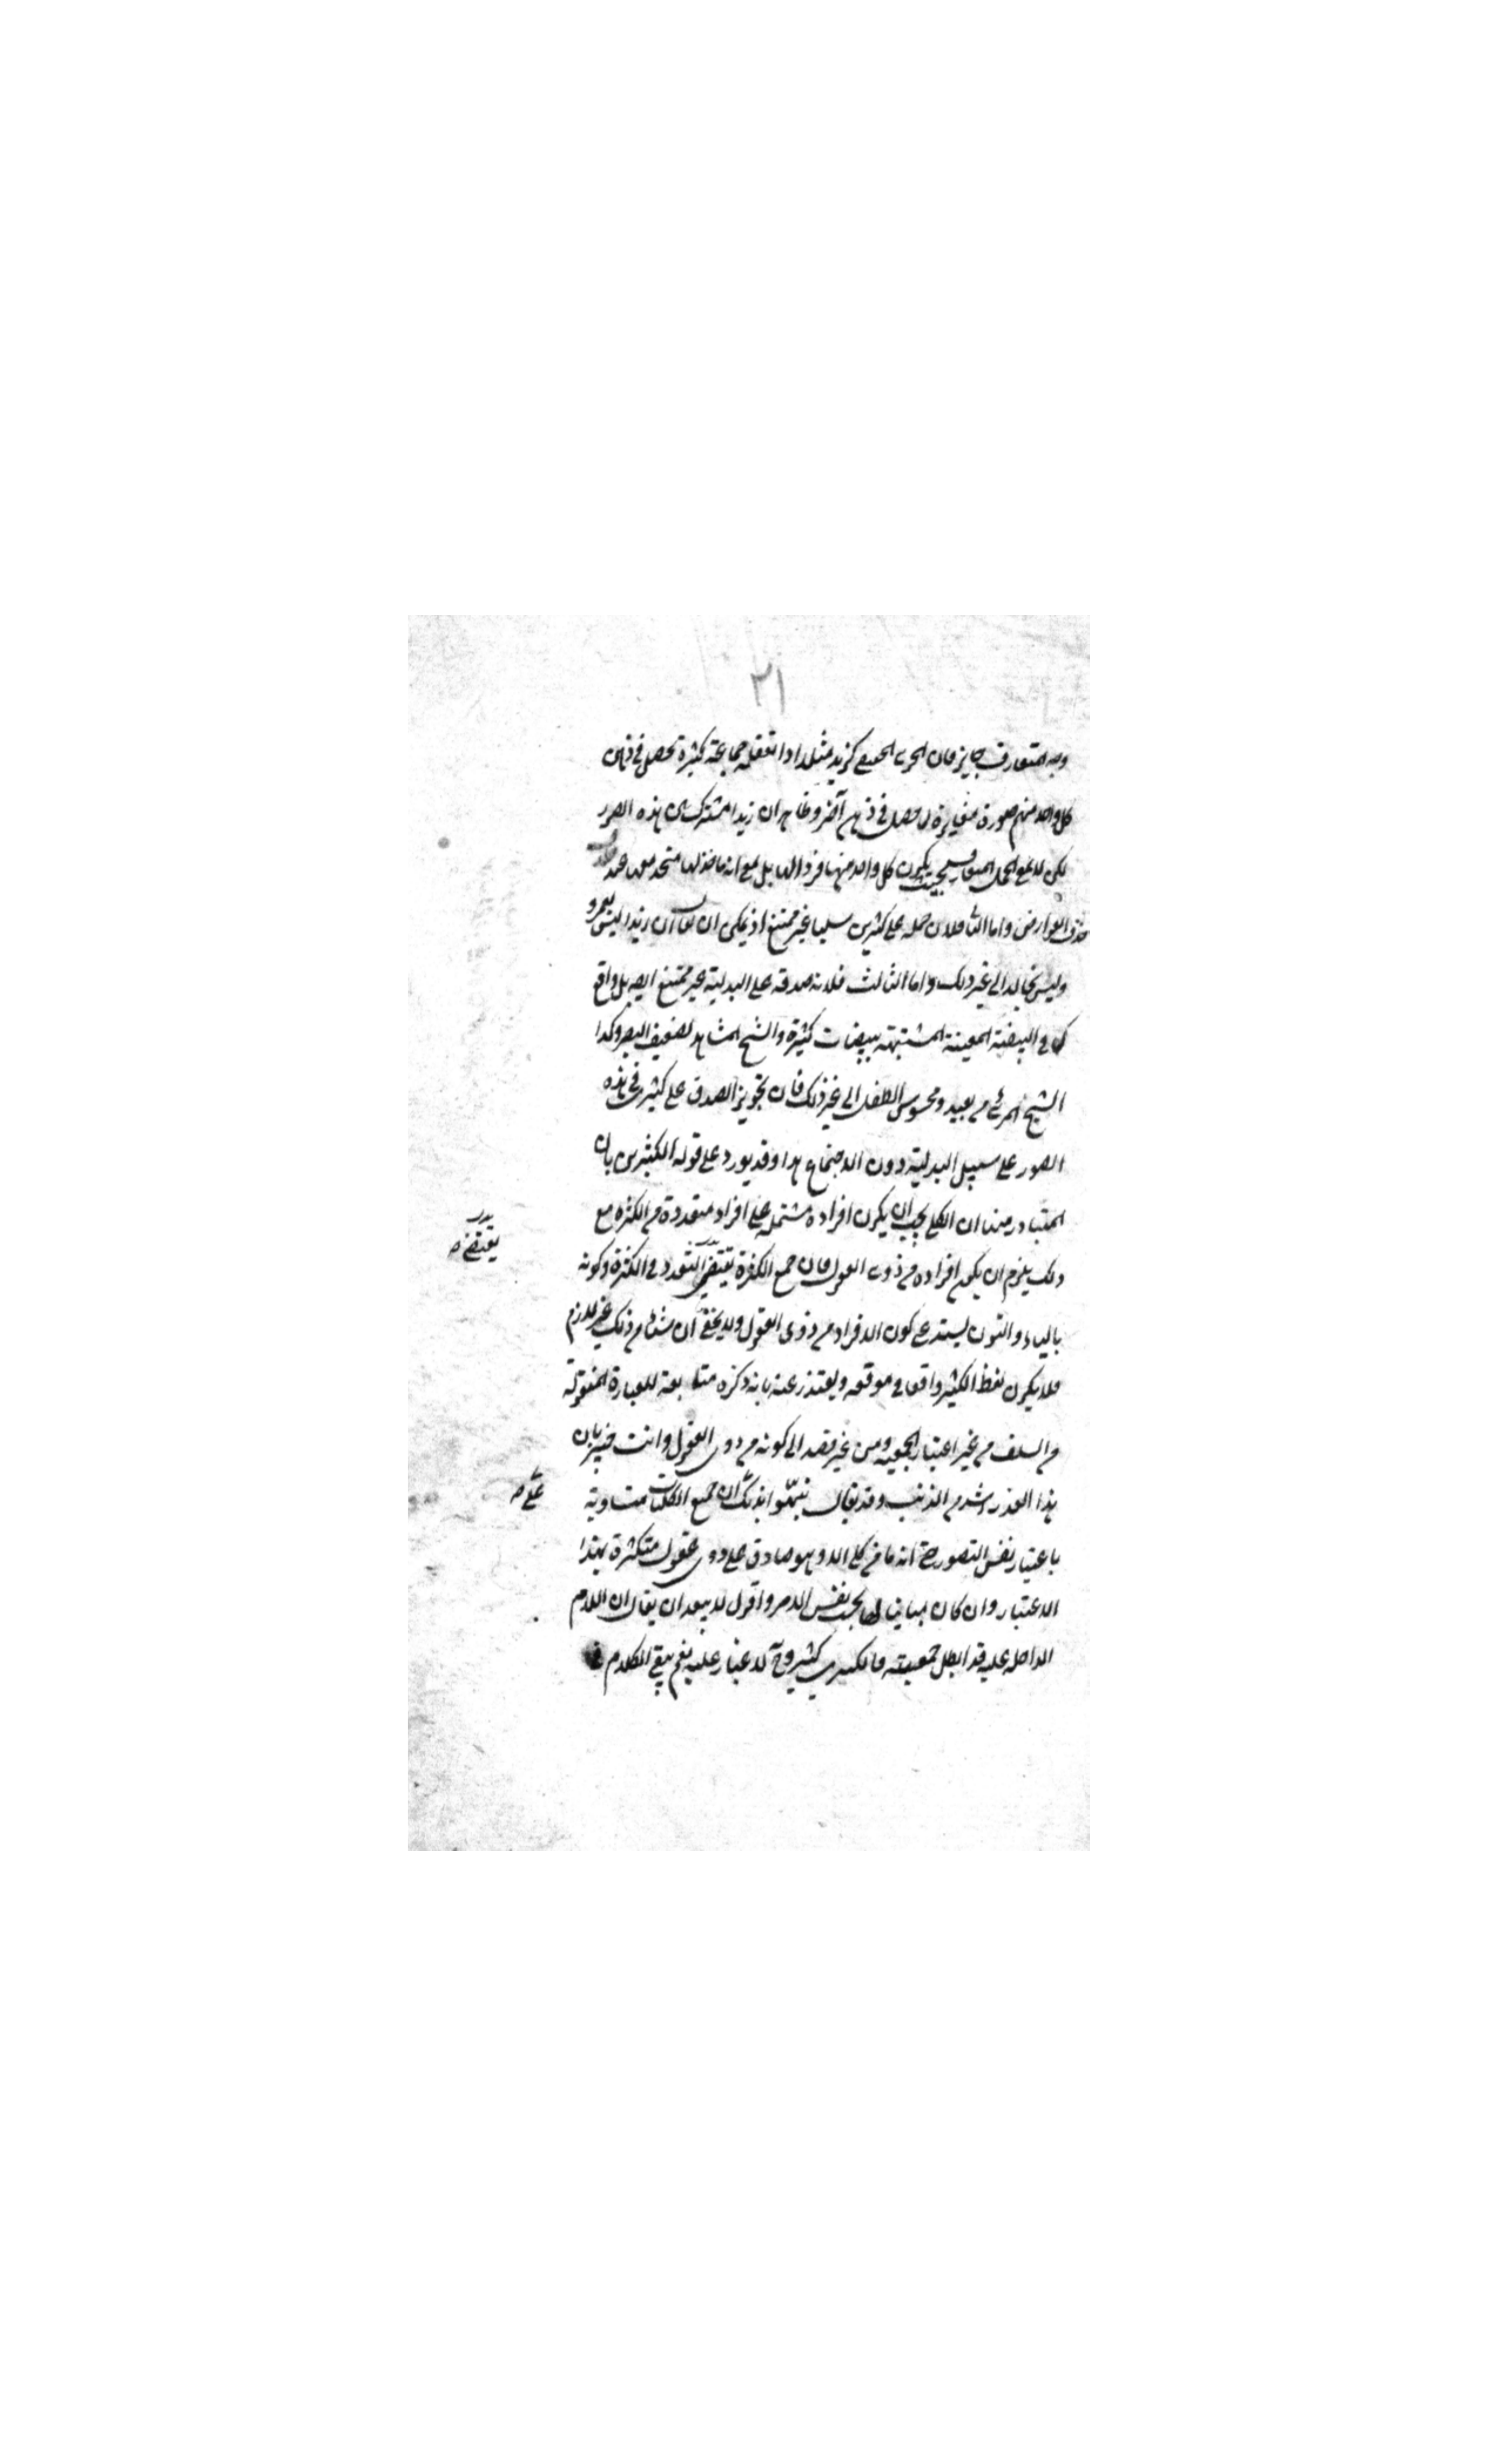 ٢١
وجه المتعارف جايز فان الجزئى الحقيقى كزيد مثلا اذا تعقله جماعة كثيرة تحصل فى ذهن
كل واحد منهم صورة مغايرة لما حصل فى ذهن آخر وظاهر ان زيدا مشترك بين هذه الصور
لكن لا مع الحمل المتعارف بحيث يكون كل واحد منها فردا لها بل مع انه ماخذ لها متحد معها عند
حذف العوارض واما الثانى فلان حمله على كثيرين سلبيا غير ممتنع اذ يمكن ان يقال ان زيدا ليس بعمرو
وليس بخالد الى غير ذلك واما الثالث فلانه صدقه على البدلية غير ممتنع ايضا بل واقع
كما فى البيضة المعينة المشتبهة ببيضات كثيرة والشبح المشاهد لضعيف البصر وكذا
الشبح المرئى من بعيد ومحسوس الطفل الى غير ذلك فان تجويز الصدق على كثيرين فى هذه
الصور على سبيل البدلية دون الاجتماع هذا وقد يورد على قوله الكثيرين بان
المتبادر منها ان الكلى يجب ان يكون افراده مشتملة على افراد متعددة من الكثرة مع
ذلك يلزم ان يكون افراده من ذوى العقول فان جمع الكثرة يقتضى التعدد فى الكثرة وكونه
يقتضى ص
بالياء والنون يستدعى كون الافراد من ذوى العقول ولا يخفى ان شيئا من ذلك غير لازم
فلا يكون لفظ الكثير واقعا فى موقعه ويعتذر عنه بانه ذكره متابعة للعبارة المنقولة
من السلف من غير اعتبار الجمعية ومن غير قصد الى كونه من ذوى العقول وانت خبير بان
هذا العذر اشد من الذنب وقد يقال نبهوا بذلك على ان جميع الكليات متساوية
على ص
باعتبار نفس التصور حتى انه ما من كلى الا وهو صادق على ذوى عقول متكثرة بهذا
الاعتبار وان كان مباينا لها بحسب نفس الامر واقول لا يبعد ان يقال ان اللام
الداخلة عليه قد ابطل جمعيته فالكثيرين كثير وح لا غبار عليه نعم يبقى الكلام فى